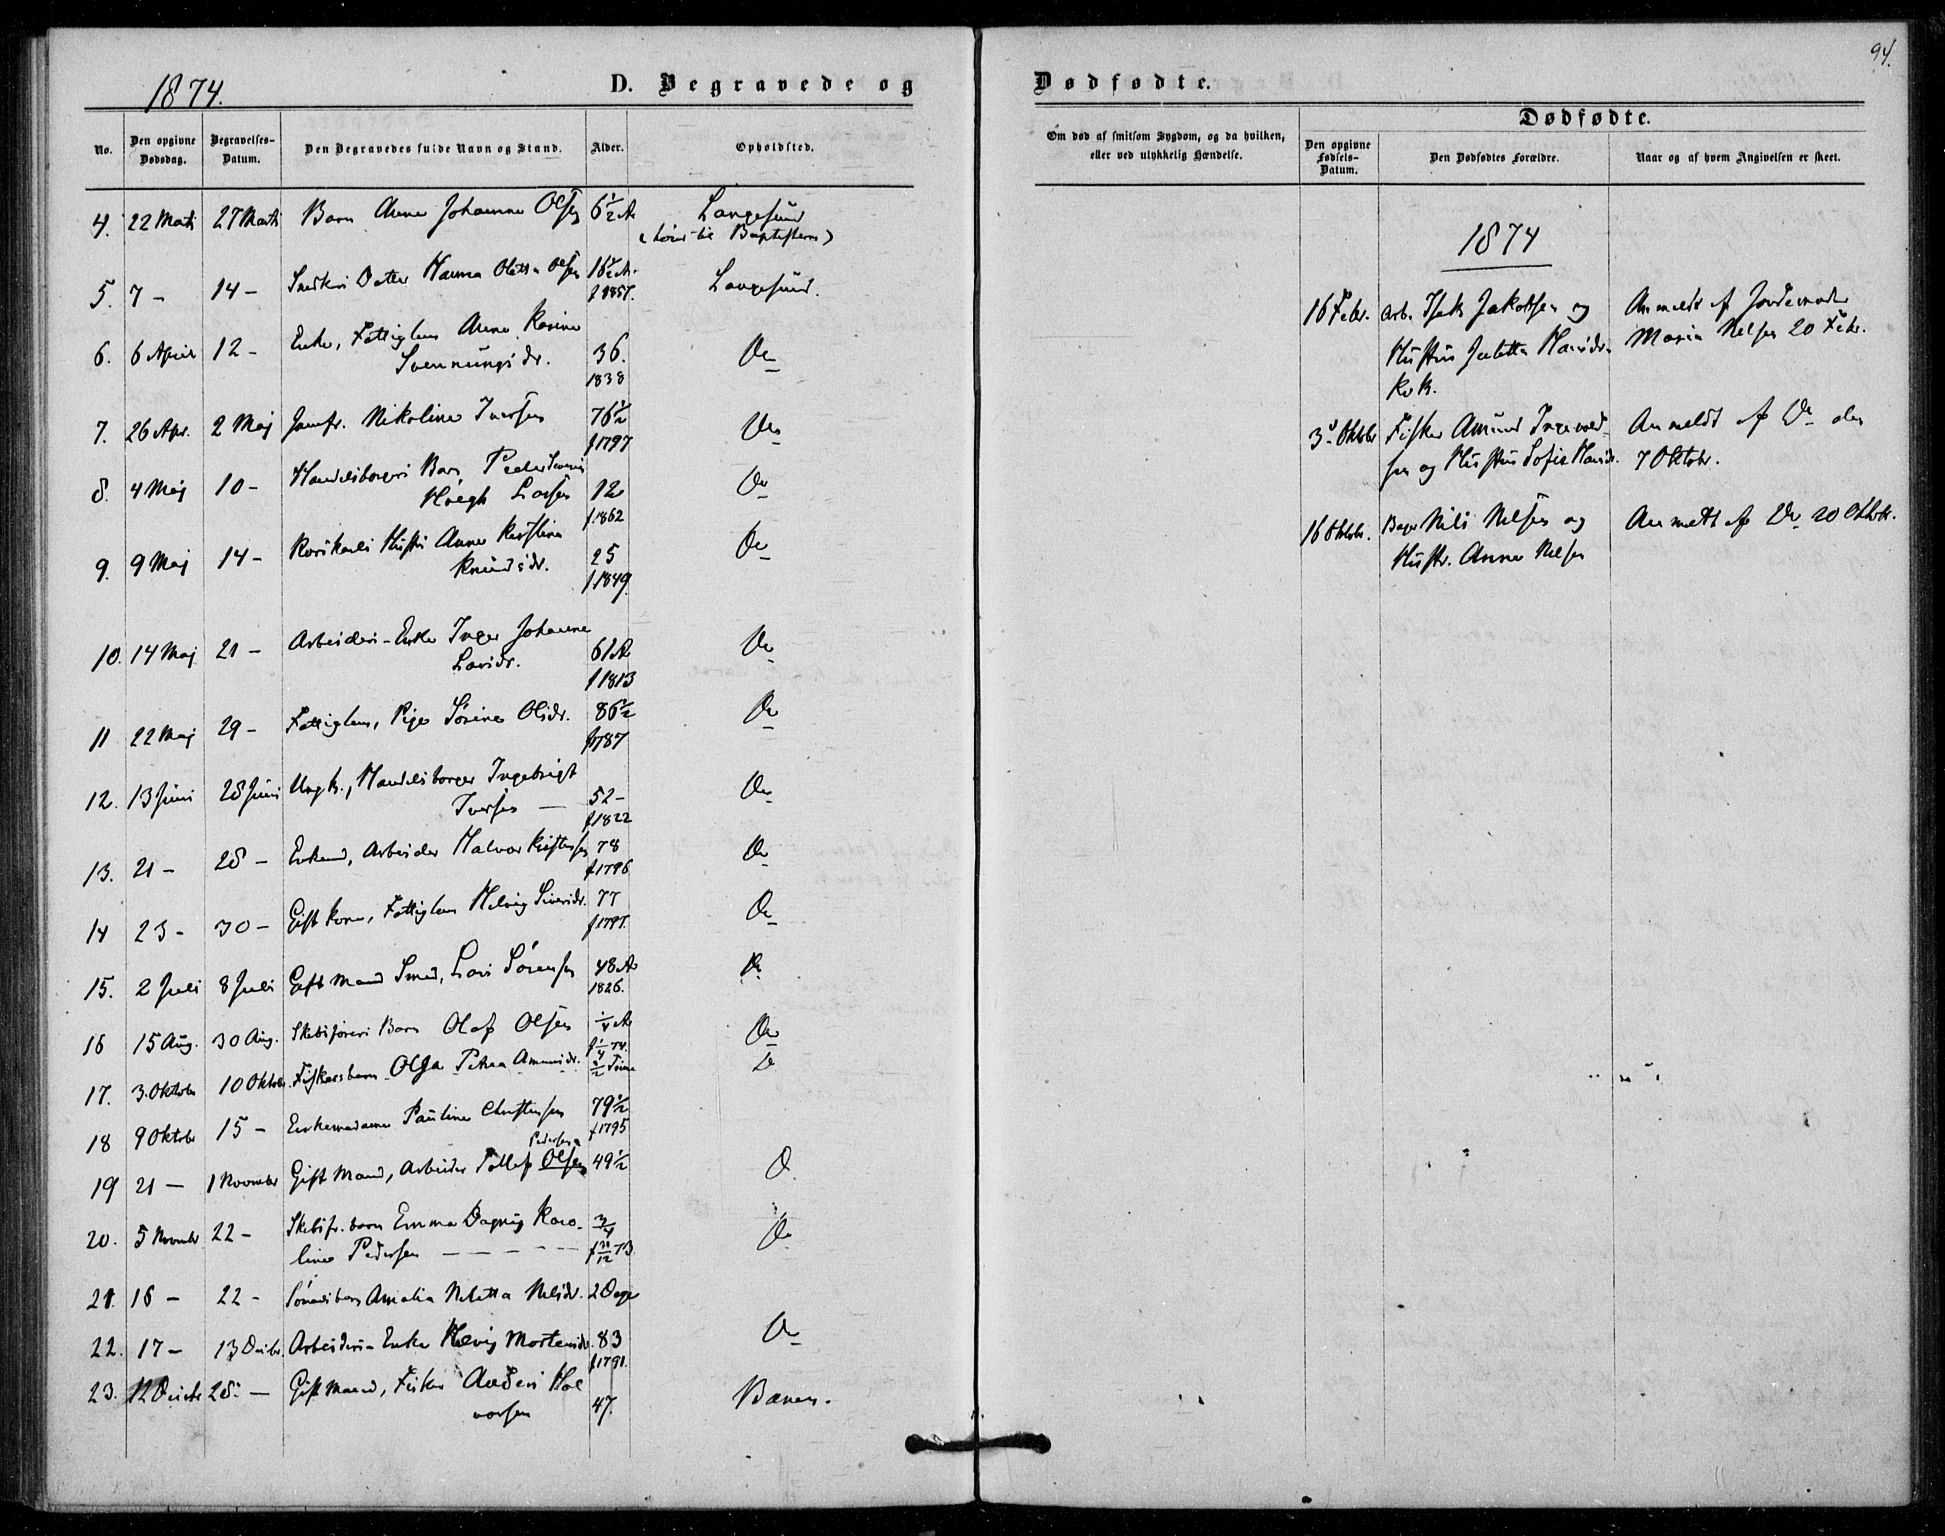 1874.
D. Begravede og
No.
Den opgivne Dødsdag.
Begravelses-Datum.
Den Begravedes fulde Navn og Stand.
Alder.
Opholdsted.
4. 22 Marts 27 Marts Barn Anne Johanne Olsen 6 1/2 A Langesund
Baptisterne)
5. 7 - 14 - Datter Hanna Olsen 16 1/2 A. Langesund.
f 1857.
6. 6 April 12 - Enke, Fattiglem Anne Karine
Svennungsdr. 36. Do
1838
7. 26 Apr. 2 Maj Jomfr. Nikoline Iversen 76 1/2 Do
f 1797
8. 4 Maj 10 - Handelsborgers Barn Peder Severin
Høegh Larsen 12 Do
f. 1862
9. 9 Maj 14 - Hustru Anne Kirstine
Knudsdr. 25 Do
f. 1849
10. 14 Maj 21 - Arbeiders-Enke Inger Johanne
Larsdr. 61 A Do
f 1813
11 22 Maj 29 - Fattiglem, Pige Sørine Olsdr. 86 1/2 Do
f 1787
12. 13 Juni 28 Juni Ungk., Handelsborger Ingebrigt
Iversen — 52 - Do
f 1822
13. 21 - 28 - Enkemd, Arbeider Halvor Kristensen 78 Do
f 1796
14 23 - 30 - Gift Kone, Fattiglem Helvig Siversdr. 77 Do
f 1797.
15. 2 Juli 8 Juli Gift Mand Smed, Lars Sørensen 48 A Do
1826.
16 15 Aug. 30 Aug. Skibsførers Barn Olaf Olsen 1/4 A Do
17. 3. Oktober 10 Oktober. Fiskers barn Olga Petrea Amundsdr. 1/2 Time Do
18 9 Oktobr 15 - Enkemadame Pauline Christensen 79 1/2
f 1795
Pedersen
19 21 — 1 November Gift Mand, Arbeider Tollef Olsen 49 1/2 Do.
20. 5 Novembr 22 - Skibsfr. barn Emma Dagny Karo- 3/4 Do
line Pedersen - - - - - f 20/12 73.
21. 16 - 22 - Amalia Niletta Nilsdr. 2 Dage
22. 17 - 13 Decbr. Arbeiders-Enke Helvig Mortensdr. 83 Do
f 1791.
23. 12 Decbr 28. — Gift Mand, Fisker Anders Hal
vorsen 47. Barnes.
94.
Dødfødte.
Om død af smitsom Sygdom, og da hvilken,
eller ved ulykkelig Hændelse.
Dødfødte.
Den opgivne Fødsels-Datum.
Den Dødfødtes Forældre.
Naar og af hvem Angivelsen er skeet.
1874
16 Febr. Arb. Isak Jakobsen og Anmeldt af Jordemoder
Hustru Juletta Hansdr. Maria Nelsen 20 Febr.
3 Oktobr Fisker Amund Ingevald- Anmeldt af Do den
sen og Hustru Sofie Hansdr. 7 Oktobr.
16 Oktobr. Nils Nelsen og Anmeldt af Do 20 Oktobr.
Hustr. Anne Nelsen